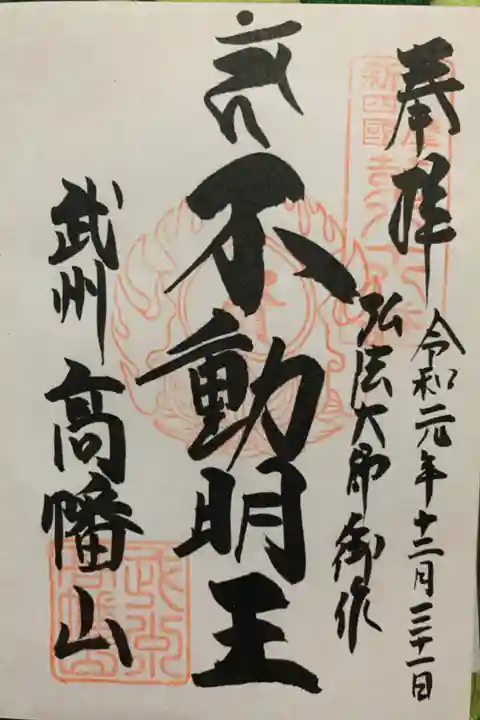 奉拝
令和元年十二月三十一日
弘法大師御作
不動明王
武州
高幡山
新四國